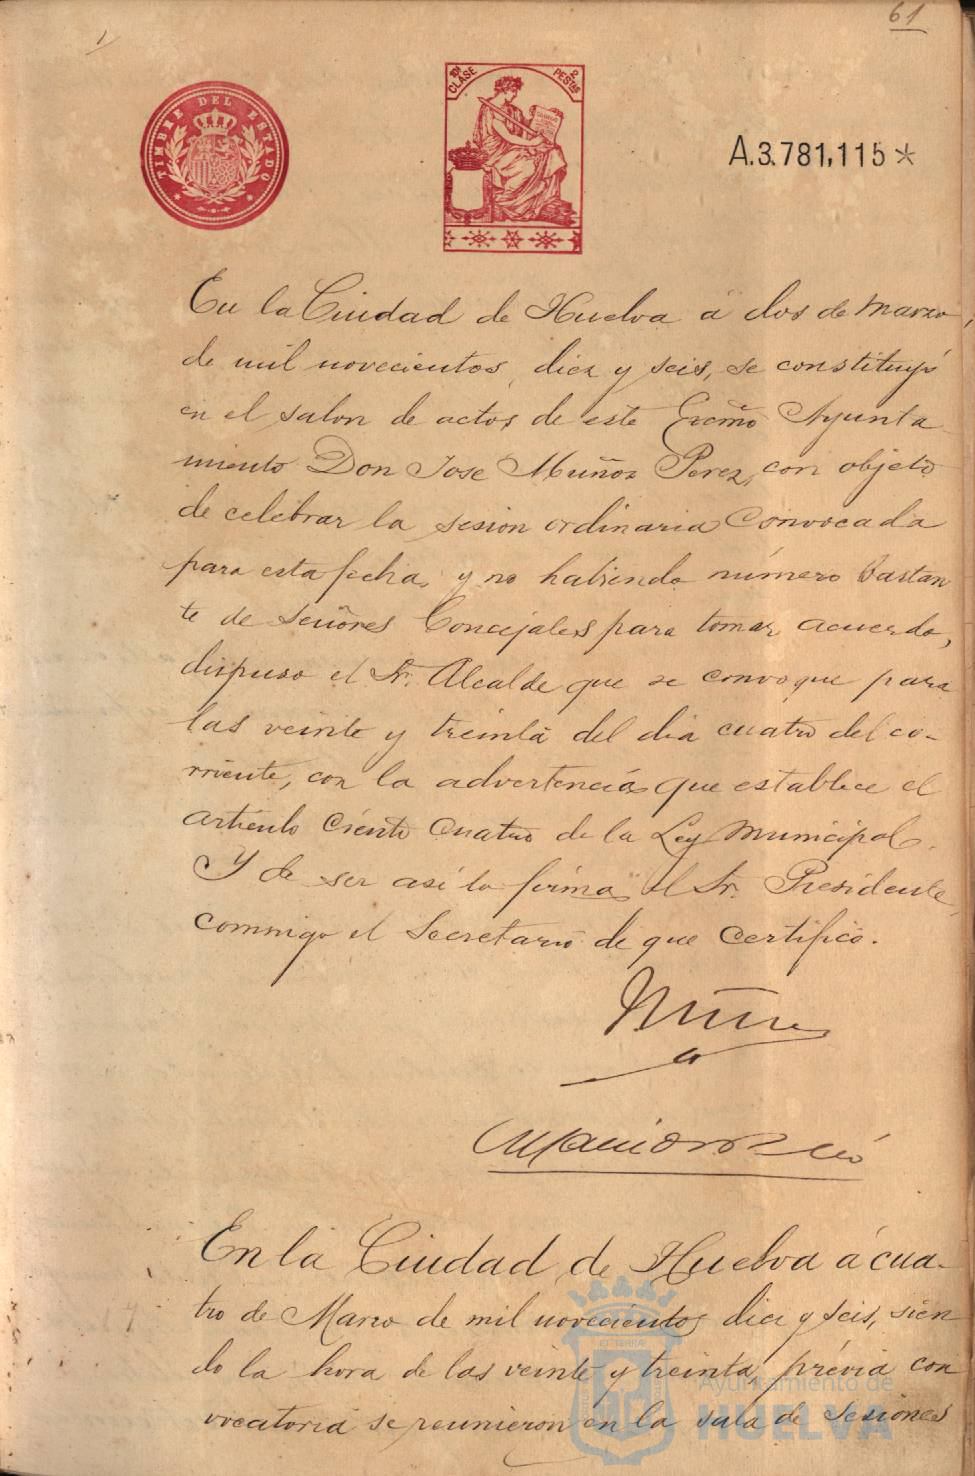 61
1
TIMBRE DEL ESTADO
10ª CLASE
2 PESETAS
A.3.781,115*
En la Ciudad de Huelva á dos de Marzo,
de mil novecientos, diez y seis, se constituyó
en el salon de actos de este Excmo Ayunta-
miento Don Jose Muñoz Perez, con objeto
de celebrar la sesion ordinaria Convocada
para esta fecha, y no habiendo número bastan
te de Señores Concejales para tomar acuerdo,
dispuso el Sr. Alcalde que se convoque para
las veinte y treinta del dia cuatro del co-
rriente, con la advertencia que establece el
artículo Ciento Cuatro de la Ley Municipal.
Y de ser así lo firma el Sr. Presidente,
conmigo el Secretario de que Certifico.
Muñoz
En la Ciudad de Huelva á cua-
tro de Marzo de mil novecientos diez y seis, sien
do la hora de las veinte y treinta, prévia con
vocatoria se reunieron en la sala de Sesiones
Ayuntamiento de
HUELVA